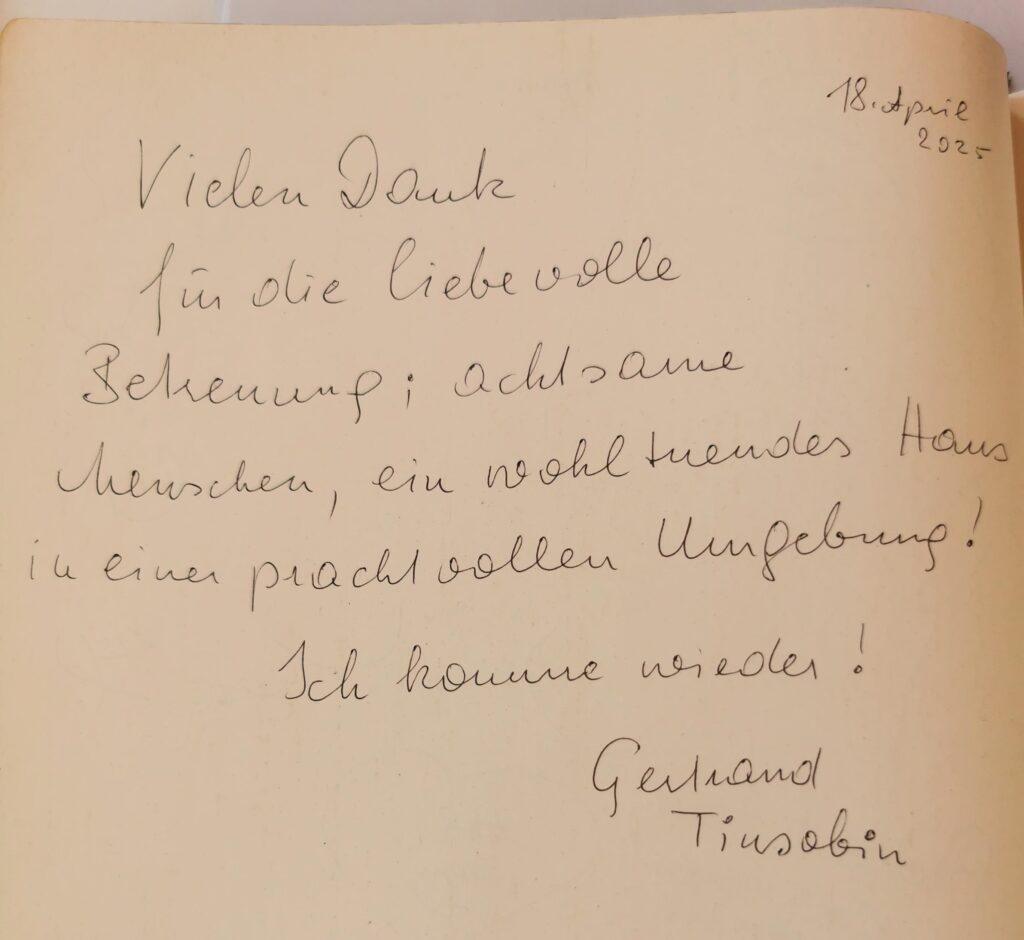 18. April
2025
Vielen Dank
für die liebevolle
Betreuung; achtsame
Menschen, ein wohltuendes Haus
in einer prachtvollen Umgebung!
Ich komme wieder!
Gertraud